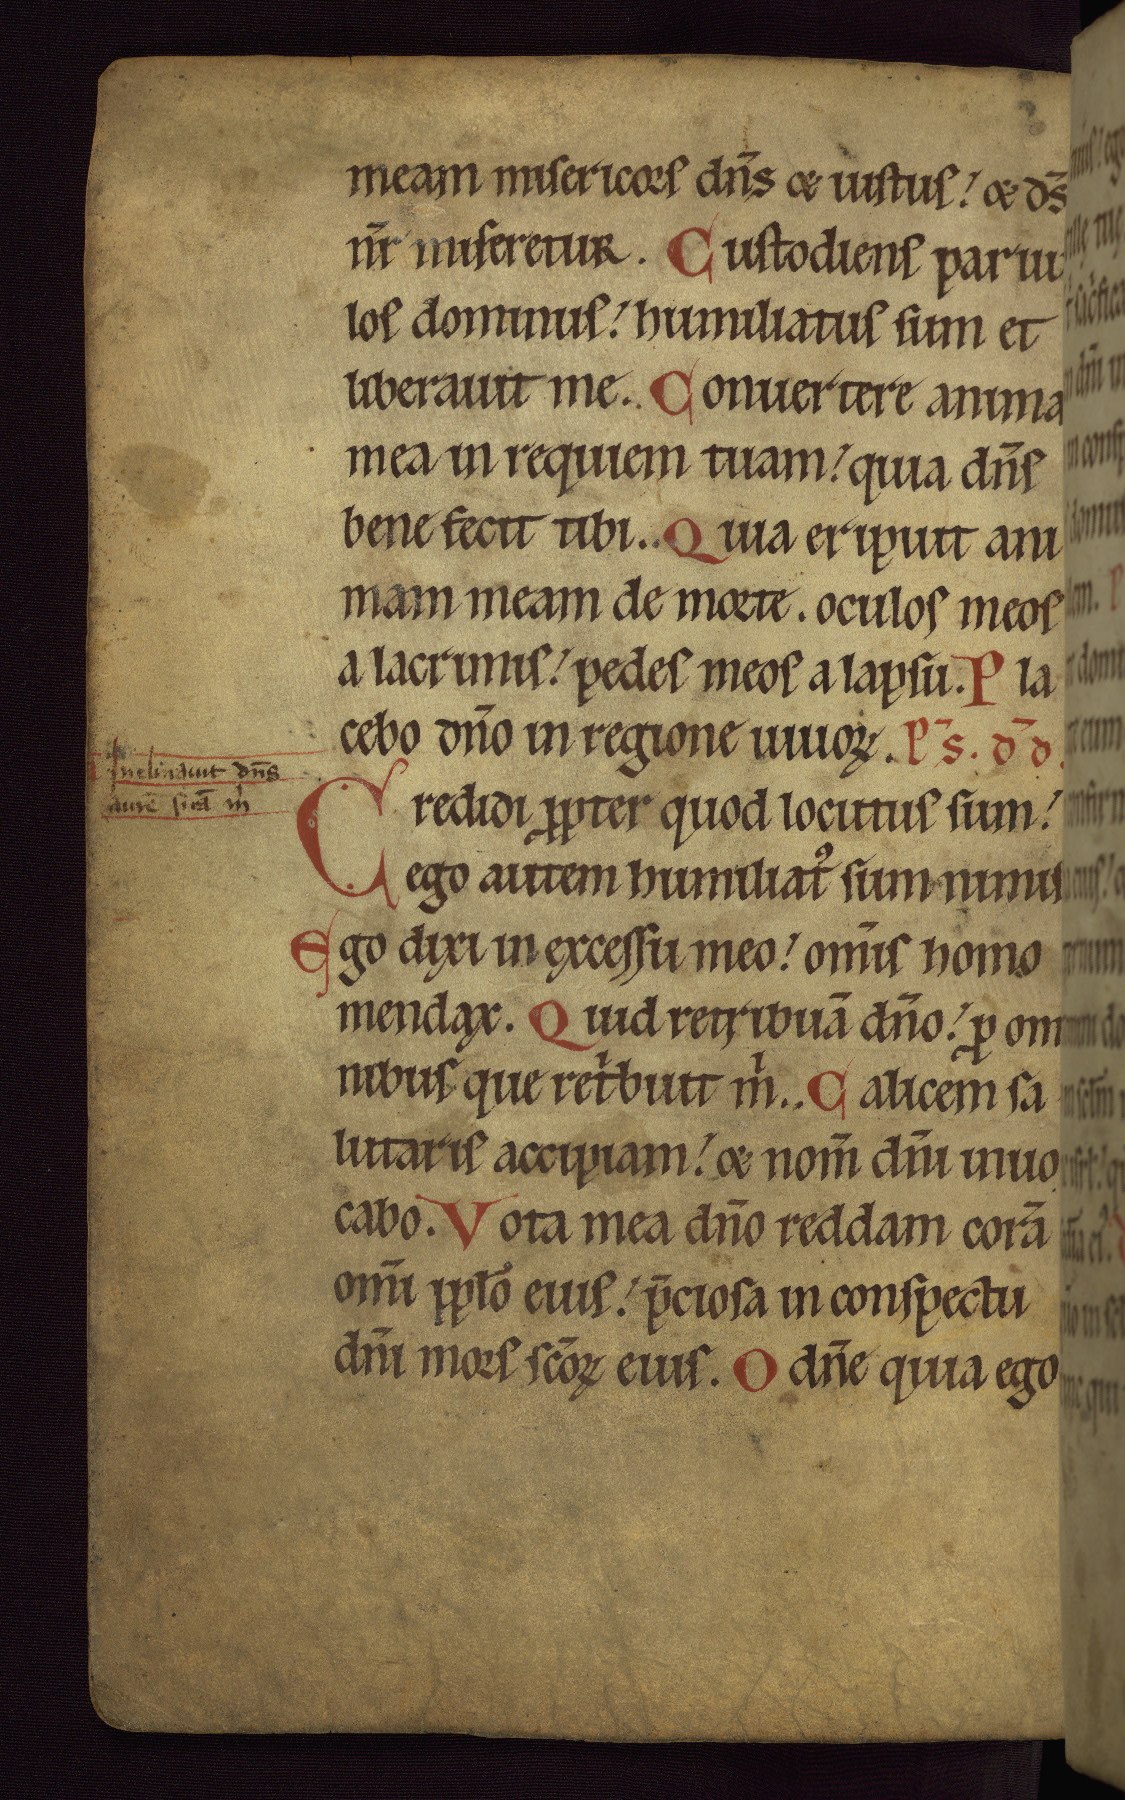 meam misericors dn̄s & iustus! & ds̄
nr̄ miseretur. Custodiens paruu
los dominus! humiliatus sum et
liberauit me.. Conuertere anima
mea in requiem tuam! quia dn̄s
bene fecit tibi.. Quia eripuit ani
mam meam de morte. oculos meos
a lacrimis! pedes meos a lapsu. Pla
cebo dn̄o in regione uiuoꝝ. Ps̄. dd̄.
Inclinauit dn̄s
aurē suā m̄
Credidi ꝓpter quod locutus sum!
ego autem humiliatꝰ sum nimis
Ego dixi in excessu meo! om̄is homo
mendax. Quid retribuā dn̄o! ꝓ om
nibus que ret̍buit m̍.. Calicem sa
lutaris accipiam! & nom̄ dn̄i inuo
cabo. Vota mea dn̄o reddam corā
om̄i ppl̄o eius! p̄ciosa in conspectu
dn̄i mors sc̄oꝝ eius. O dn̄e quia ego